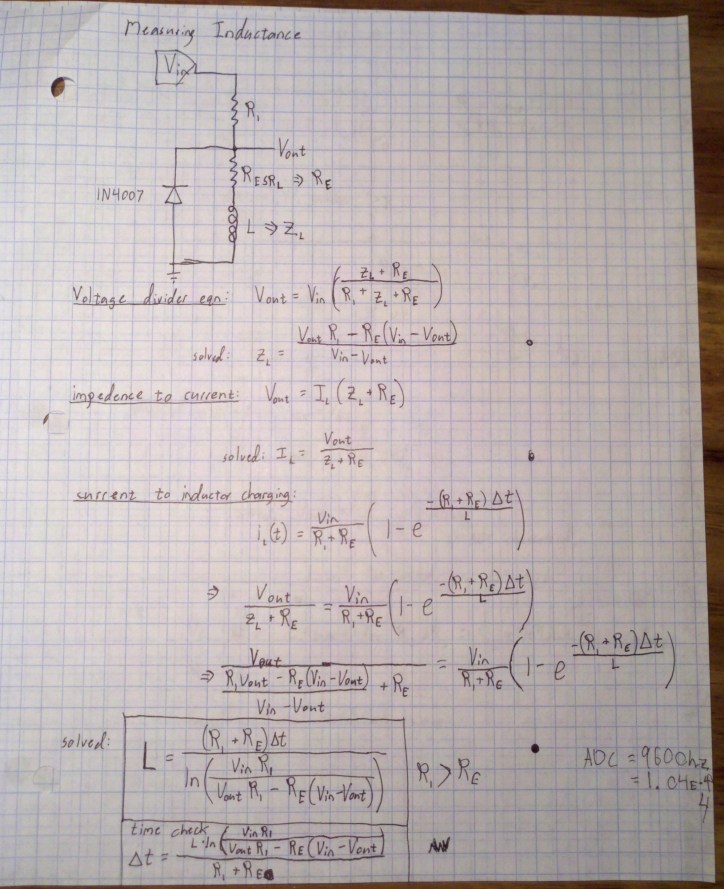 Measuring Inductance
Vin
R₁
Vout
R_ESR_L ⇒ R_E
1N4007
L ⇒ Z_L
Voltage divider eqn: Vout = Vin ( (Z_L + R_E) / (R₁ + Z_L + R_E) )
solved: Z_L = (Vout R₁ − R_E (Vin − Vout)) / (Vin − Vout)
impedence to current: Vout = I_L (Z_L + R_E)
solved: I_L = Vout / (Z_L + R_E)
current to inductor charging:
i_L(t) = Vin / (R₁ + R_E) ( 1 − e^(−(R₁ + R_E) Δt / L) )
⇒ Vout / (Z_L + R_E) = Vin / (R₁ + R_E) ( 1 − e^(−(R₁ + R_E) Δt / L) )
⇒ Vout / ( (R₁ Vout − R_E (Vin − Vout)) / (Vin − Vout) + R_E ) = Vin / (R₁ + R_E) ( 1 − e^(−(R₁ + R_E) Δt / L) )
solved: L = (R₁ + R_E) Δt / ln( Vin R₁ / (Vout R₁ − R_E (Vin − Vout)) )
R₁ > R_E
ADC = 9600hz
= 1.04E-4
4
time check
Δt = L·ln( Vin R₁ / (Vout R₁ − R_E (Vin − Vout)) ) / (R₁ + R_E)